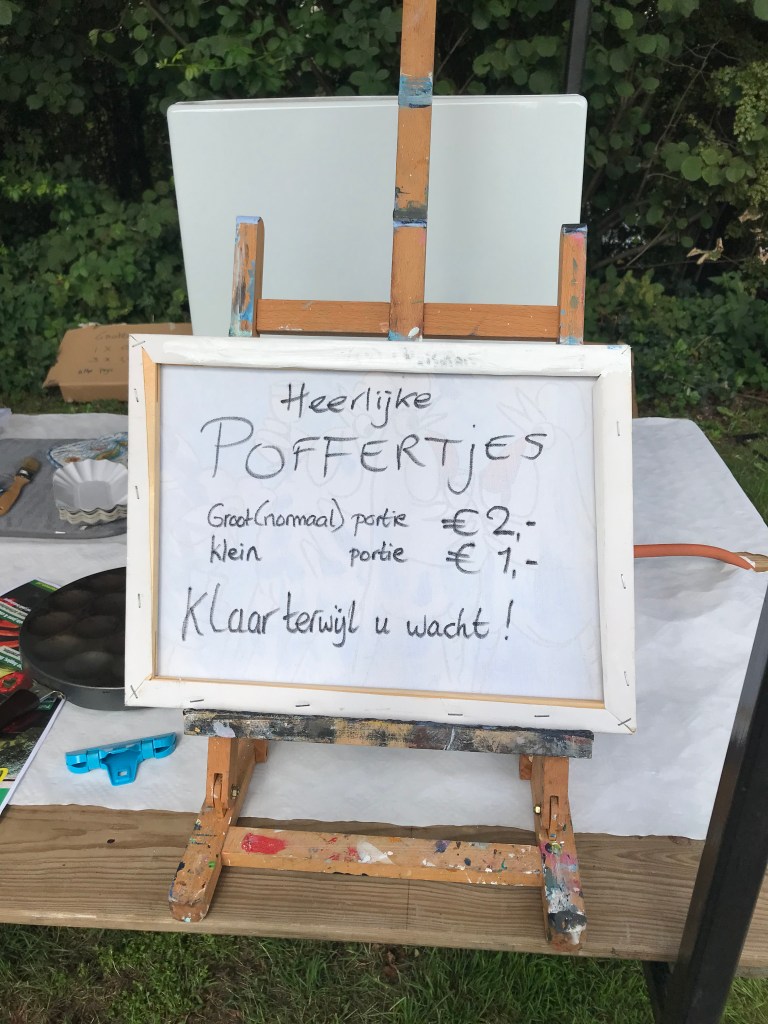 Heerlijke
POFFERTJES
Groot (normaal) portie € 2,-
klein portie € 1,-
Klaar terwijl u wacht!